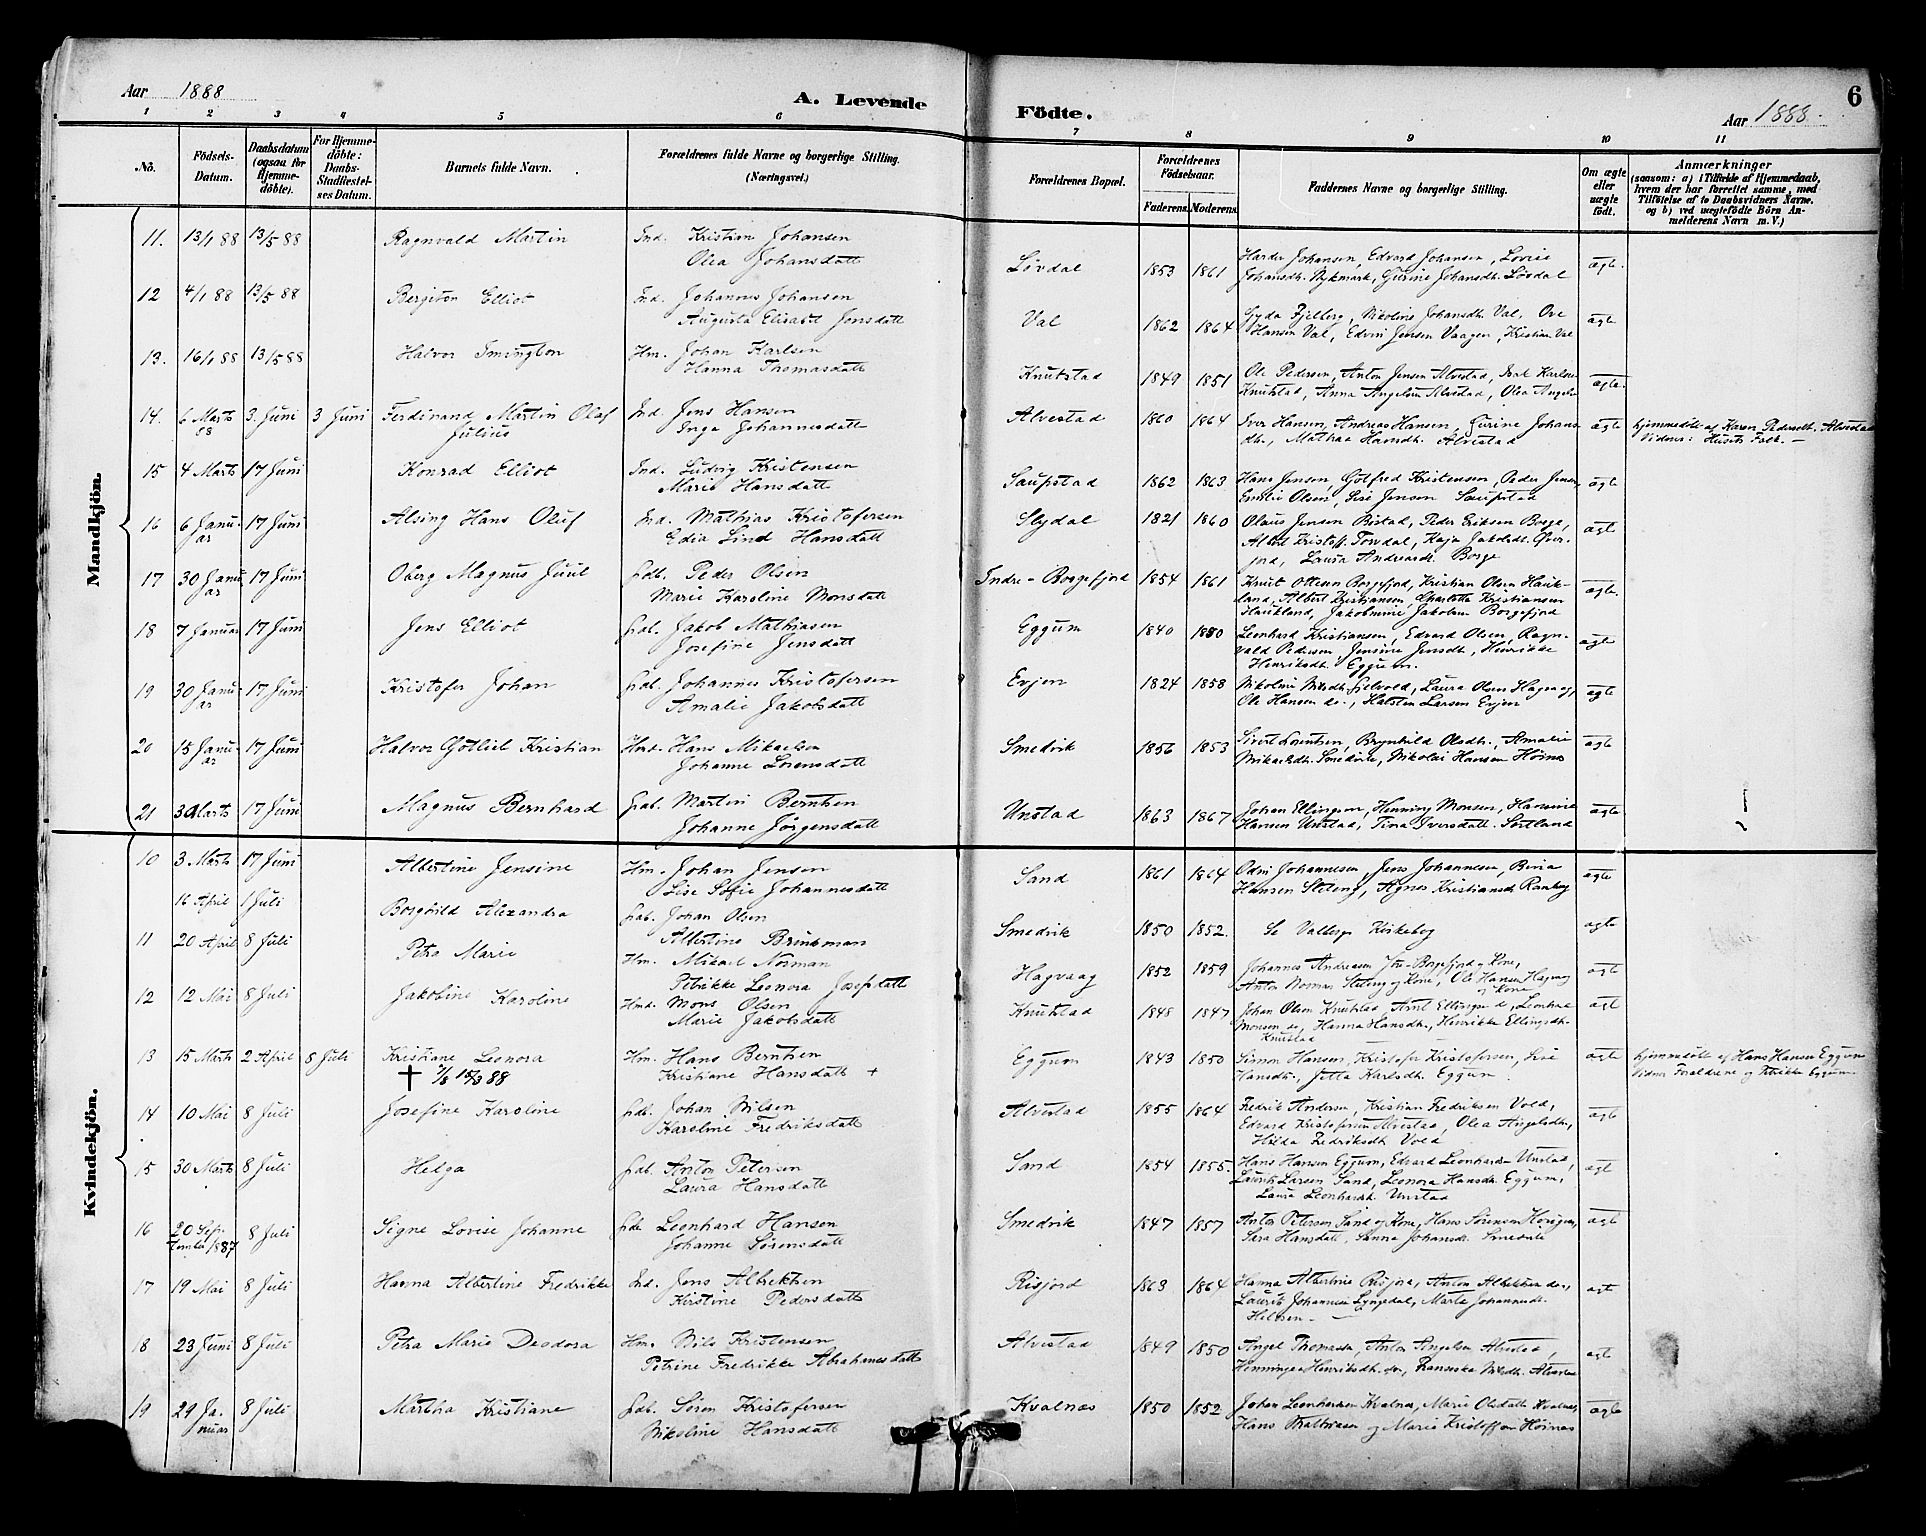 Aar 1888
A. Levende
Födte.
Aar 1888.
6
1 2 3 4 5 6 7 8 9 10 11
No.
Födsels-
Datum.
Daabsdatum
(ogsaa for
Hjemme-
döbte).
For Hjemme-
döbte:
Daabs-
Stadfæstel-
ses Datum.
Barnets fulde Navn.
Forældrenes fulde Navne og borgerlige Stilling.
(Næringsvei.)
Forældrenes Bopæl.
Forældrenes
Födselsaar.
Faderens. Moderens.
Faddernes Navne og borgerlige Stilling.
Om ægte
eller
uægte
födt.
Anmærkninger
(saasom: a) i Tilfælde af Hjemmedaab,
hvem der har forrettet samme, med
Tilföielse af to Daabsvidners Navne.
og b) ved uægtefödte Börn An-
melderens Navn m. V.)
Mandkjön.
11. 13/1 88 13/5 88 Ragnvald Martin Ind. Kristian Johansen
Olea Johansdatt Løvdal 1853 1861 Harder Johansen, Edvard Johansen, Lovise
Johansdt. Nykmark, Gurine Johansdt. Lövdal ægte.
12 4/1 88 13/5 88 Bergiton Elliot Ind. Johannes Johansen
Augusta Elisabet Jonsdatt Val 1862 1864 Gyda Fjelberg, Nikoline Johansdt. Val, Ove
Hansen Val, Edvin Jensen Vaagen, Kristian Val ægte
13. 16/1 88 13/5 88 Halvor Hm. Johan Karlsen
Hanna Thomasdatt Knutstad 1849 1851 Ole Pedersen, Anton Jensen Alvestad, Karlsen
Knutstad, Anna Angelsen Alvestad, Olea Angelsn ægte.
14. 6 Marts
88 3. Juni 3 Juni Ferdinand Martin Olaf
Julius Ind. Jens Hansen
Inga Johannesdatt Alvestad 1860 1864 Iver Hansen, Andreas Hansen, Gurine Johans
dt., Mathea Hansdt. Alvestad ægte hjemmedöbt af Karen Pedersdt. Alvestad
Vidner: Husets Folk. —
15 4 Marts 17 Juni Konrad Elliot Ind. Ludvig Kristensen
Marie Hansdatt Saupstad 1862 1863 Hans Jensen, Gotfred Kristensen, Peder Jensen,
Emilie Olsen, Lise Jensen Saupstad ægte
16 6 Janu-
ar 17 Juni Alsing Hans Oluf Ind. Mathias Kristofersen
Edia Lind Hansdatt Slydal 1821 1860 Olaus Jensen Bøstad, Peder Eriksen Borge,
Albert Kristoff. Torvdal, Kaja Jakobdt. Øver-
fjord, Laura Andreasdt. Borge ægte
17 30 Janu
ar 17 Juni Oberg Magnus Juul Gdb. Peder Olsen
Marie Karoline Monsdatt Indre-Borgefjord 1854 1861 Knut Ottesen Borgefjord, Kristian Olsen Hauk-
land, Albert Kristiansen, Charlotte Kristiansen
Haukland, Jakobmine Jakobsen Borgefjord ægte.
18 7 Januar 17 Juni Jens Elliot Gdb. Jakob Mathiasen
Josefine Jensdatt Eggum 1840 1850 Leonhard Kristiansen, Edvard Olsen, Ragn-
vald Pedersen, Jensine Jensdt., Henrikke
Henriksdt. Eggum. ægte
19 30 Janu-
ar 17 Juni Kristofer Johan Gdb. Johannes Kristofersen
Amalie Jakobsdatt Evjen 1824 1858 Nikoline Nilsdt. Fjelvold, Laura Olsen Hagvaag,
Ole Hansen do., Halsten Larsen Evjen ægte
20 15 Janu-
ar 17 Juni Halvor Gotlieb Kristian Hans Mikaelsen
Johanne Lorensdatt Smedvik 1856 1853 Sivert Lorentsen, Brynhild Olsdt., Amalie
Mikaelsdt. Smedvik, Nikolai Hansen Höines ægte
21 30 Marts 17 Juni Magnus Bernhard Gdb. Martin Berntsen
Johanne Jörgensdatt Unstad 1863 1867 Johan Ellingsen, Henning Monsen, Hansine
Hansen Unstad, Tina Iversdatt. Sortland ægte.
Kvindekjön.
10 3 Marts 17 Juni Albertine Jensine Hm. Johan Jensen
Lise Sofie Johannesdatt Sand 1861 1864 Odin Johannesen, Jens Johannesen, Beria
Hansen Steteng, Agnes Kristiansdt Ramberg ægte
16 April 1 Juli Borghild Alexandra Gdb. Johan Olsen
Albertine Brinkman Smedvik 1850 1852. Se Valberg Kirkebog ægte
11 20 April 8 Juli Petra Marie Hm. Mikael Norman
Petrikke Leonora Josefdatt Hagvaag 1852 1859 Johannes Andreasen Ytre-Borgefjord og Kone,
Anton Norman Steteng og Kone, Ole Hansen Hagvaag
og Kone ægte
12 12 Mai 8 Juli Jakobine Karoline Hmd. Mons Olsen
Marie Jakobsdatt Knutstad 1848 1847 Johan Olsen Knutstad, Arnt Ellingsen d, Leonhard
Monsen do, Hanna Hansdt., Henrikke Ellingsdt.
Knutstad ægte
13 15 Marts 2 April 8 Juli Kristiane Leonora
† 7/8 15/3 88 Hm. Hans Berntsen
Kristiane Hansdatt + Eggum 1843 1850 Simon Hansen, Kristofer Kristofersen, Lise
Hansdt., Jetta Karlsdt. Eggum. ægte hjemmedöbt af Hans Hansen Eggum
Vidner Foreldrene og Petrikke Eggum.
14 10 Mai 8 Juli Josefine Karoline Gdb. Johan Nilsen
Karoline Fredriksdatt Alvestad 1855 1864 Fredrik Andersen, Kristian Fredriksen Vold,
Edvard Kristofersen Alvestad, Olea Angelsdt.,
Hilda Fredriksdt. Vold ægte
15 30 Marts 8 Juli Helga Gdb. Anton Petersen
Laura Hansdatt Sand 1854 1855. Hans Hansen Eggum, Edvard Leonhardsen Unstad,
Laurits Larsen Sand, Leonora Hansdt. Eggum,
Laura Leonhardsdt. Unstad ægt
16 20 Sep-
tember 1887 8 Juli Signe Lovise Johanne Gdb Leonhard Hansen
Johanne Sørensdatt Smedvik 1847 1857 Anton Petersen Sand og Kone, Hans Sørensen
Sara Hansdatt, Sanna Johansdt. Smedvik ægt
17 19 Mai 8 Juli Hanna Albertine Fredrikke Ind. Jens Albrektsen
Kirstine Pedersdatt Risjord 1863 1864 Hanna Albertine Risjord, Anton Albrektsen do.,
Laurits Johannesen Lyngedal, Marta Johannesdt.
Helosen. — ægt
18 23 Juni 8 Juli Petra Marie Deodora Hm. Nils Kristensen
Petrine Fredrikke Abrahamsdatt Alvestad 1849 1850 Angel Thomassen, Anton Angelsen Alvestad,
Henningea Henriksdt. do., Fransiska Nilsdt. Alvestad ægt
19 29 Ja-
nuar 8 Juli Martha Kristiane Gdb. Sören Kristofersen
Nikoline Hansdatt Kvalnæs 1850 1852 Johan Leonhardsen Kvalnæs, Marie Olsdatt. Kvalnæs,
Hans og Marie Kristoffersen Höines ægte